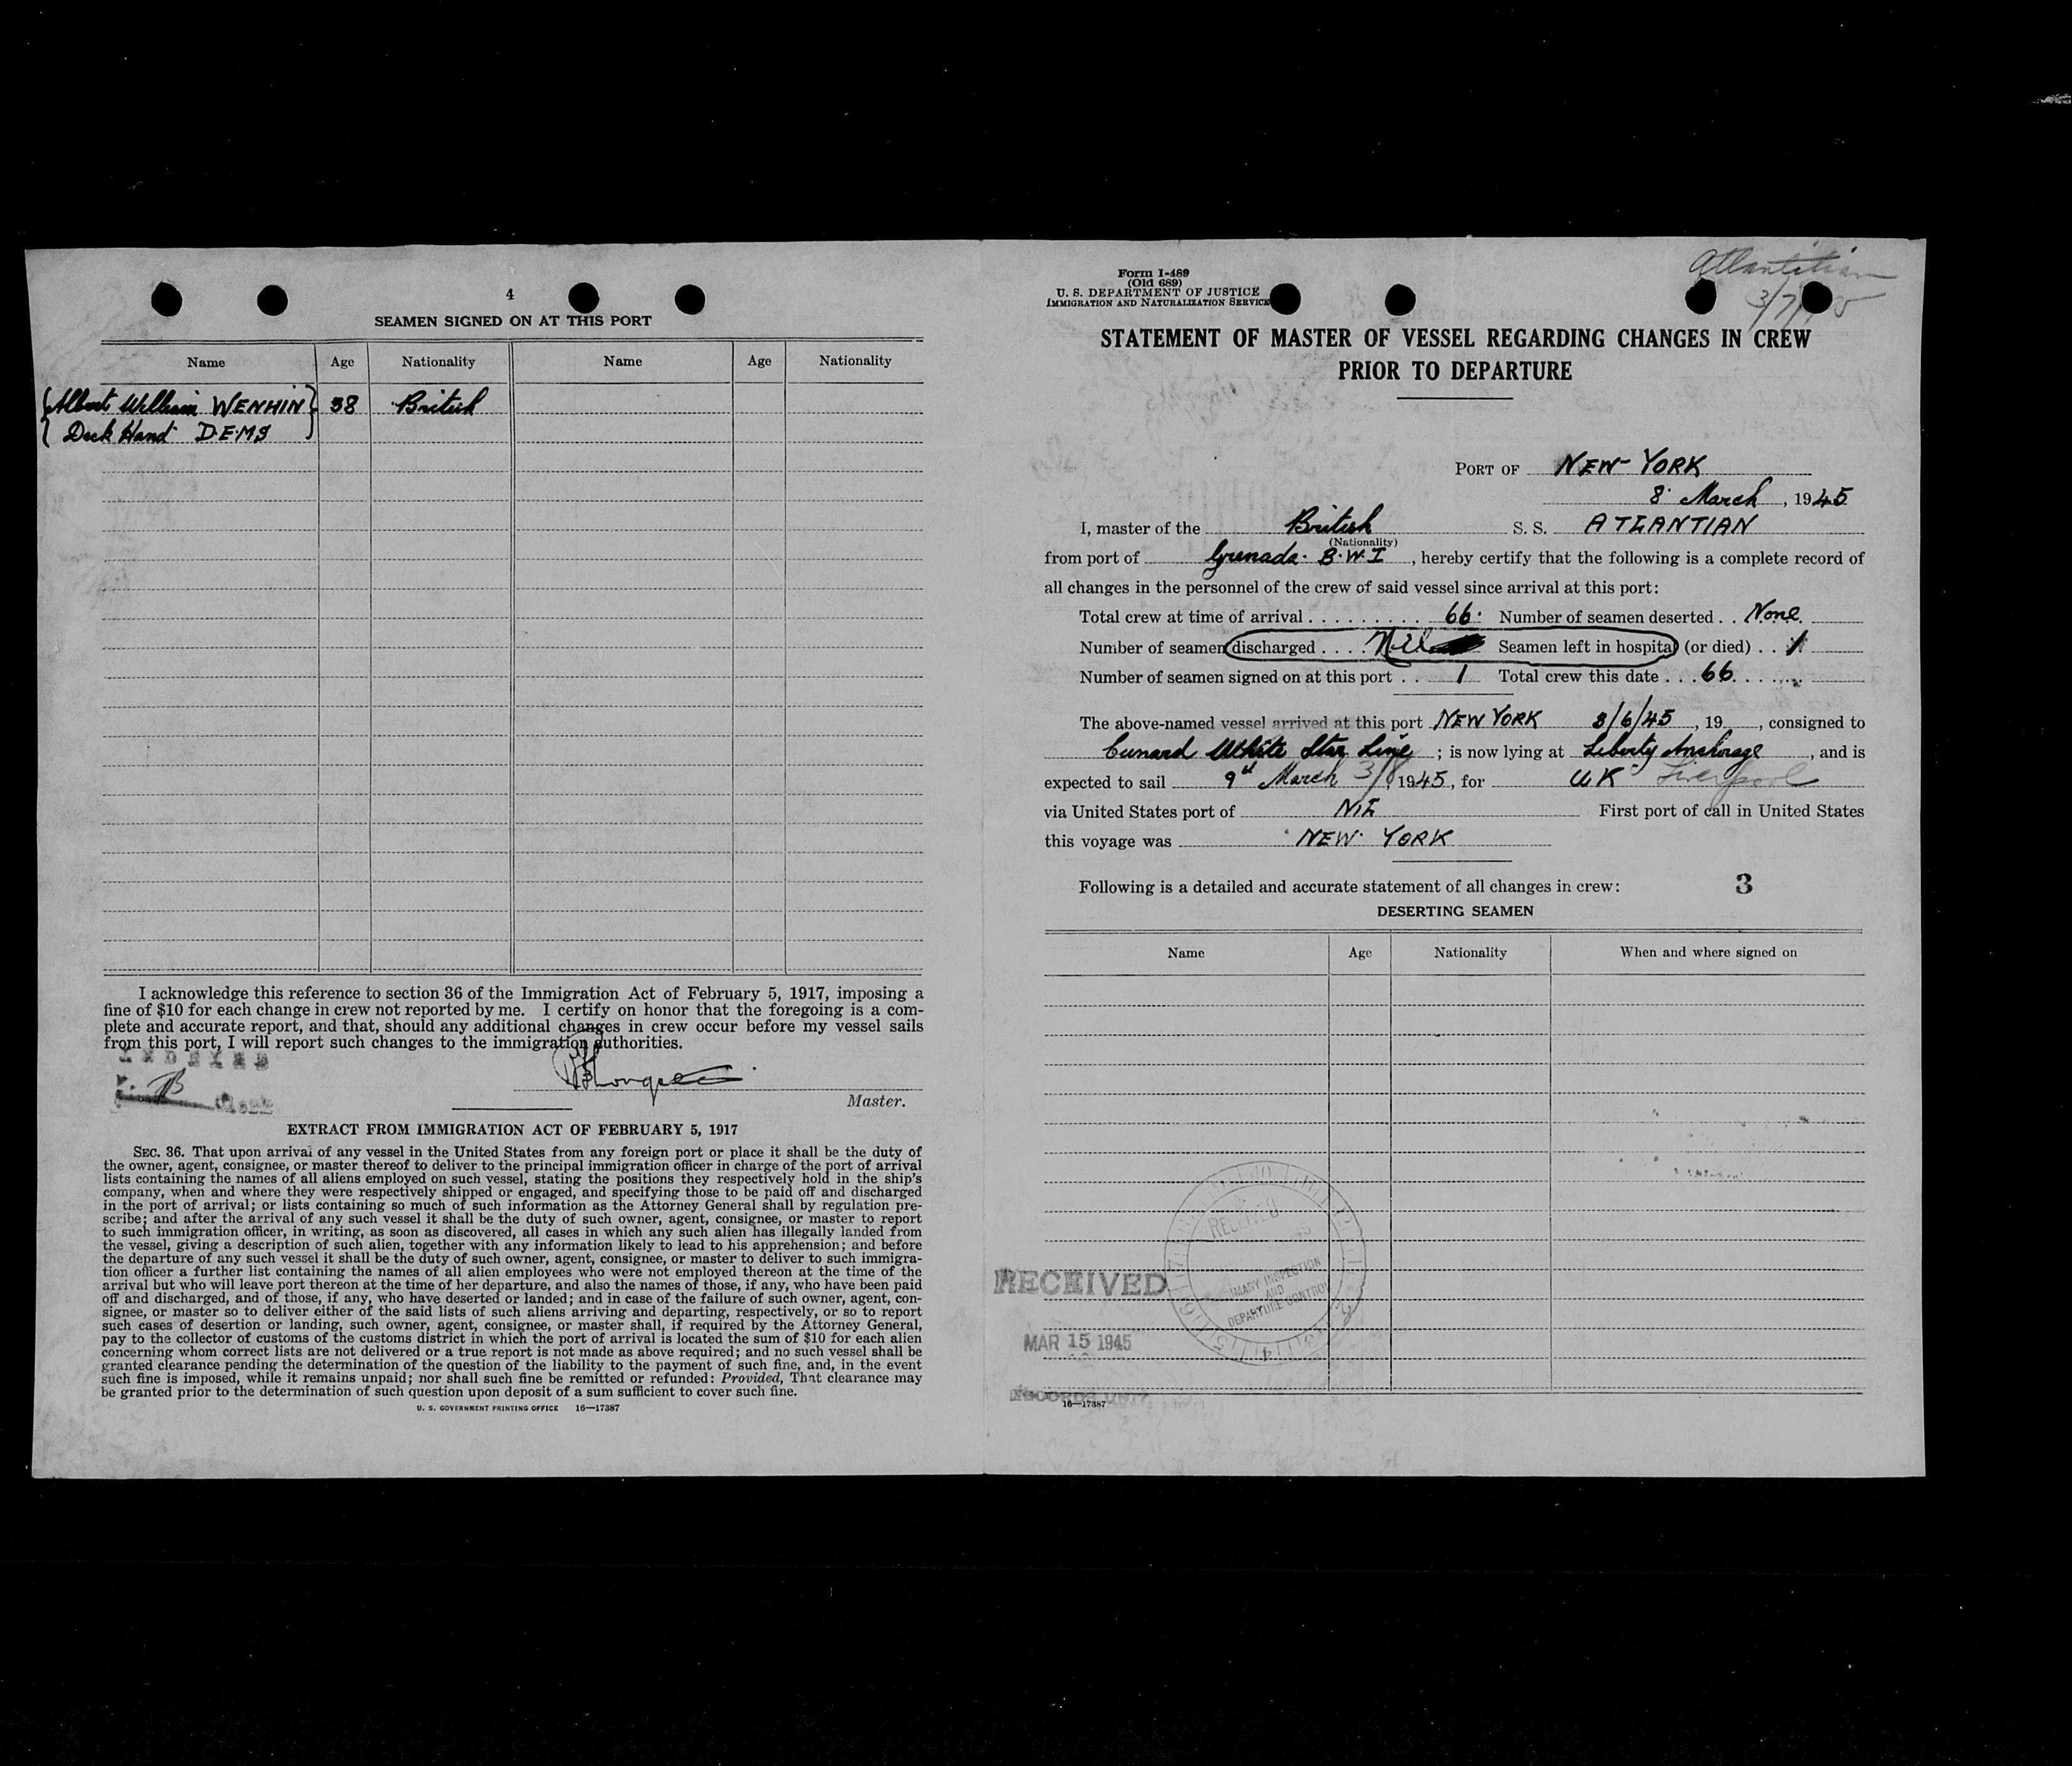 4
SEAMEN SIGNED ON AT THIS PORT
Name Age Nationality Name Age Nationality
Albert William WENHIN 38 British
Deck Hand D.E.M.S
I acknowledge this reference to section 36 of the Immigration Act of February 5, 1917, imposing a
fine of $10 for each change in crew not reported by me. I certify on honor that the foregoing is a com-
plete and accurate report, and that, should any additional changes in crew occur before my vessel sails
from this port, I will report such changes to the immigration authorities.
Master.
EXTRACT FROM IMMIGRATION ACT OF FEBRUARY 5, 1917
SEC. 36. That upon arrival of any vessel in the United States from any foreign port or place it shall be the duty of
the owner, agent, consignee, or master thereof to deliver to the principal immigration officer in charge of the port of arrival
lists containing the names of all aliens employed on such vessel, stating the positions they respectively hold in the ship's
company, when and where they were respectively shipped or engaged, and specifying those to be paid off and discharged
in the port of arrival; or lists containing so much of such information as the Attorney General shall by regulation pre-
scribe; and after the arrival of any such vessel it shall be the duty of such owner, agent, consignee, or master to report
to such immigration officer, in writing, as soon as discovered, all cases in which any such alien has illegally landed from
the vessel, giving a description of such alien, together with any information likely to lead to his apprehension; and before
the departure of any such vessel it shall be the duty of such owner, agent, consignee, or master to deliver to such immigra-
tion officer a further list containing the names of all alien employees who were not employed thereon at the time of the
arrival but who will leave port thereon at the time of her departure, and also the names of those, if any, who have been paid
off and discharged, and of those, if any, who have deserted or landed; and in case of the failure of such owner, agent, con-
signee, or master so to deliver either of the said lists of such aliens arriving and departing, respectively, or so to report
such cases of desertion or landing, such owner, agent, consignee, or master shall, if required by the Attorney General,
pay to the collector of customs of the customs district in which the port of arrival is located the sum of $10 for each alien
concerning whom correct lists are not delivered or a true report is not made as above required; and no such vessel shall be
granted clearance pending the determination of the question of the liability to the payment of such fine, and, in the event
such fine is imposed, while it remains unpaid; nor shall such fine be remitted or refunded: Provided, That clearance may
be granted prior to the determination of such question upon deposit of a sum sufficient to cover such fine.
U. S. GOVERNMENT PRINTING OFFICE 16—17387
Form I-489
(Old 689)
U. S. DEPARTMENT OF JUSTICE
IMMIGRATION AND NATURALIZATION SERVICE
STATEMENT OF MASTER OF VESSEL REGARDING CHANGES IN CREW
PRIOR TO DEPARTURE
PORT OF NEW YORK
8 March, 1945
I, master of the British S. S. ATLANTIAN
(Nationality)
from port of Grenada B.W.I, hereby certify that the following is a complete record of
all changes in the personnel of the crew of said vessel since arrival at this port:
Total crew at time of arrival 66 Number of seamen deserted None
Number of seamen discharged Nil Seamen left in hospital (or died) 1
Number of seamen signed on at this port 1 Total crew this date 66
The above-named vessel arrived at this port NEW YORK 3/6/45, 19, consigned to
Cunard White Star Line; is now lying at Liberty Anchorage, and is
expected to sail 9th March 3/8 1945, for UK Liverpool
via United States port of NIL First port of call in United States
this voyage was NEW YORK
Following is a detailed and accurate statement of all changes in crew: 3
DESERTING SEAMEN
Name Age Nationality When and where signed on
RECEIVED
INSPECTION
AND
DEPARTURE CONTROL
RECEIVED
MAR 15 1945
RECORDS UNIT
16—17387